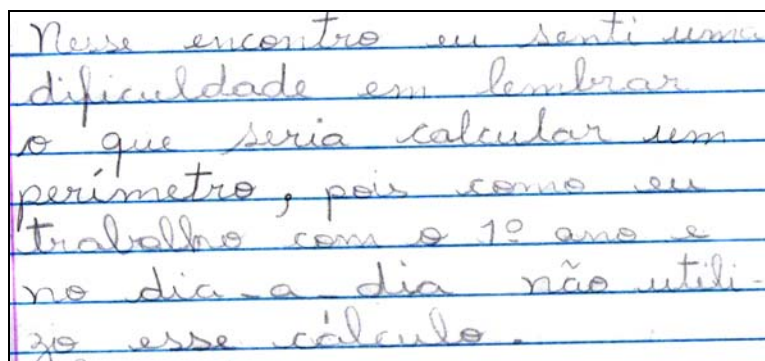 Nesse encontro eu senti uma
dificuldade em lembrar
o que seria calcular um
perímetro, pois como eu
trabalho com o 1º ano e
no dia-a-dia não utili-
zo esse cálculo.